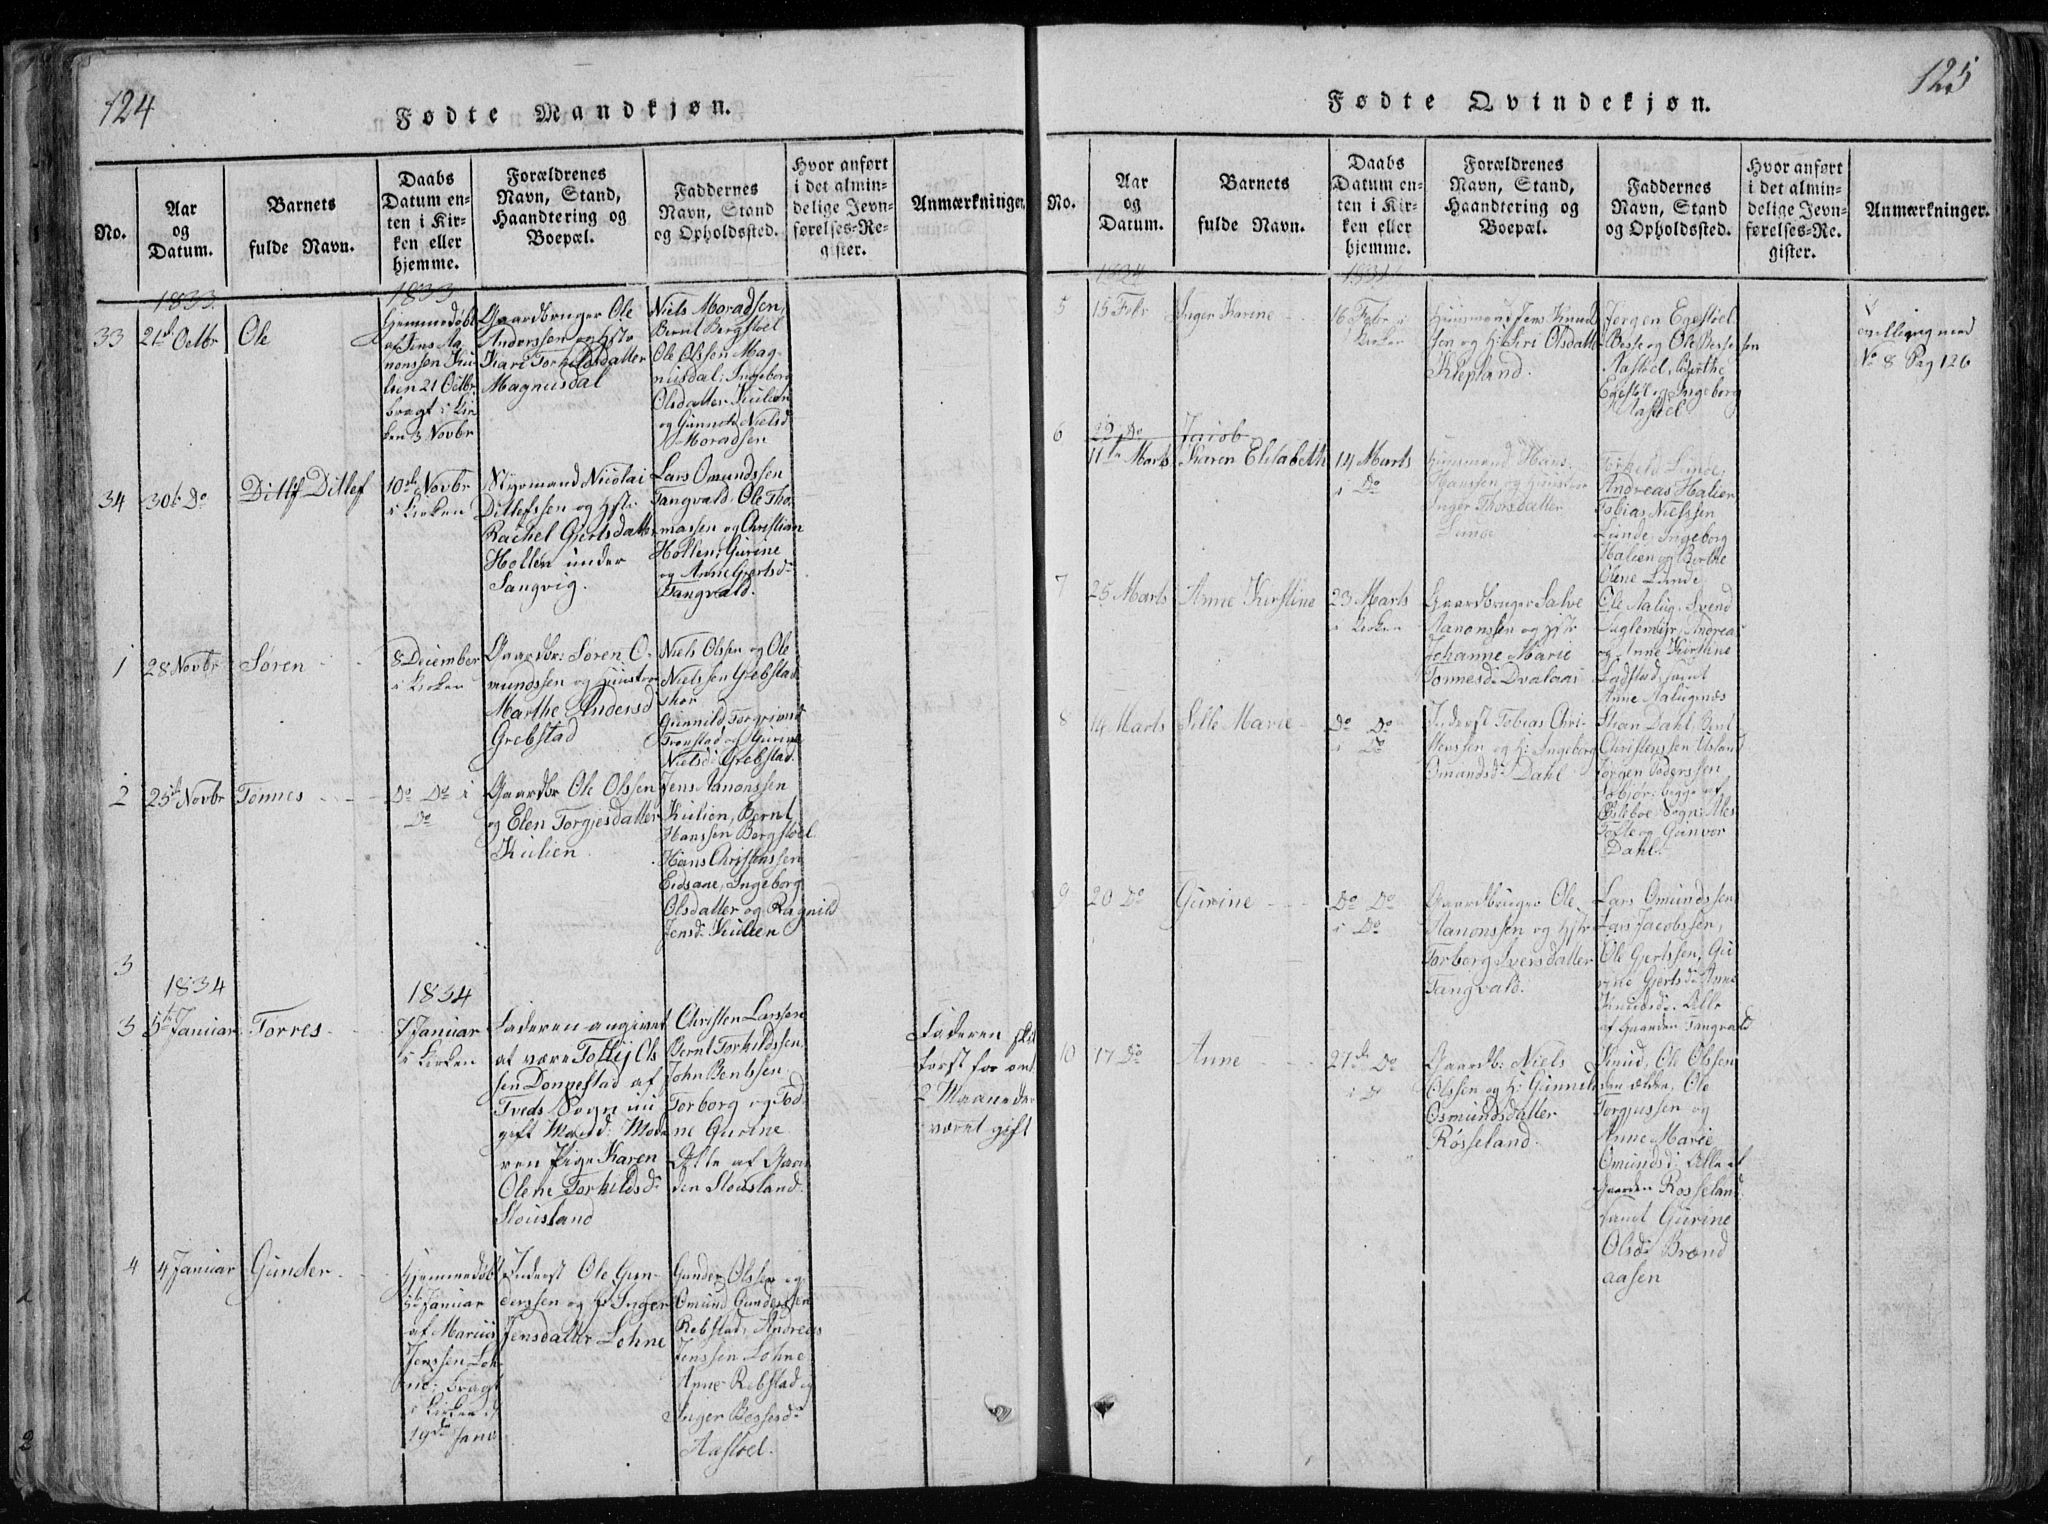 124
Fødte Mandkjøn.
No.
Aar
og
Datum.
Barnets
fulde Navn.
Daabs
Datum en-
ten i Kir-
ken eller
hjemme.
Forældrenes
Navn, Stand,
Haandtering og
Boepæl.
Faddernes
Navn, Stand
og Opholdssted.
Hvor anført
i det almin-
delige Jevn-
førelses-Re-
gister.
Anmærkninger.
1833
1833
33
21de Octbr
Ole
Hjemmedøbt
af Jens Aa-
nonssen Kui-
lien 21 Octbr
bragt i Kir
ken 3 Novbr
Gaardbruger Ole
Anderssen og Hstr
Kari Torkildsdatter
Magnusdal
Niels Moradsen
Bernt Bergstøel
Ole Olssen Mag-
nusdal, Ingeborg
Olsdatter Kuilien
og Gunnild Nielsd
Moradsen
34
30te Do
Ditlef Ditlef
10de Novbr
i Kirken
Styrmand Nicolai
Ditlefssen og Hstr
Rachel Gjertsdatter
Hollen under
Sangvig.
Lars Omundssen
Tangvald, Ole Tho-
massen og Christian
Hollen, Gurine
og Anne Gjertsd.
Tangvald.
1
28 Novbr
Søren
8 December
i Kirken
Gaardbr: Søren O-
mundssen og Hustroe
Marthe Andersd
Grebstad
Niels Olssen og Ole
Nielssen Grebstad
Gunnild Torgrimd
Tronstad og Gurine
Nielsd: Grebstad.
2
25de Novbr
Tønnes
Do Do i
Do
Gaardbr Ole Olssen
og Elen Torgjesdatter
Kuilien
Jens Aanonssen
Kuilien, Bernt
Hanssen Bergstøel
Hans Christenssen
Eidsane, Ingeborg
Olsdatter og Ragnild
Jensd: Kuilien
3
1834
1834
3
5te Januar
Torres
7 Januar
i Kirken
Faderen angivet
at være Tollij Ols
sen Dønnestad af
Tveds Sogn nu
gift Mand: Mode
ren Pige Karen
Olene Torkildsd:
Stousland
Christen Larssen
Bernt Torkildssen,
John Bentssen
Torborg og Tod-
ne Gurine
Alle af Gaar
den Stousland.
Faderen skal
først for omt
2 Maaneder
været gift
4
4 Januar
Gunder
Hjemmedøbt
5te Januar
af Marcus
Jenssen Loh-
ne: bragt
i Kirken d:
19de Janr
Inderst Ole Gun-
derssen og H: Inger
Jensdatter Lohne
Gunder Olssen og
Omund Gunderssen
Rebstad, Andreas
Jenssen Lohne
Anne Rebstad og
Inger Bessesd:
Aastøel.
125
Fødte Qvindekjøn.
No.
Aar
og
Datum.
Barnets
fulde Navn.
Daabs
Datum en-
ten i Kir-
ken eller
hjemme.
Forældrenes
Navn, Stand,
Haandtering og
Boepæl.
Faddernes
Navn, Stand
og Opholdssted.
Hvor anført
i det almin-
delige Jevn-
førelses-Re-
gister.
Anmærkninger.
1834
1834
5
15 Febr
Inger Karine
16 Febr i
Kirken
Huusmand Jens Knud
sen og H: Siri Olsdatter
Klepland.
Jørgen Egestøel
Besse og Ole Bessesen
Aastøel, Birthe
Egestøel og Ingeborg
Aastøel
No 8 Pag 126
6
22 Do
Jacob
11te Marts
Karen Elisabeth
14 Marts
i Do
Huusmand Hans
Hanssen og Hustroe
Inger Thorsdatter
Lunde
Torkild Lunde,
Andreas Halien
Tobias Nielssen
Lunde, Ingeborg
Halien og Berthe
Olene Lunde
7
25 Marts
Anne Kirstine
23 Marts
i Kirken
Gaardbruger Salve
Aanonssen og Hstr
Johanne Marie
Tønnesd: Dvalaas
Ole Aalug, Svend
Fuglemyr, Andreas
og Anne Kirstine
Ladstad, samt
Anne Aalugnæs
8
14 Marts
Sille Marie
Do Do
i Do
Inderst Tobias Chri-
stenssen og H: Ingeborg
Omundsd: Dahl
Stian Dahl, Bent
Christenssen Usland
Jørgen Pederssen
begge af
Øslebøe Sogn; Ales
Tofte og Gunvor
Dahl.
9
20 Do
Gurine
Do Do
i Do
Gaardbruger Ole
Aanonssen og Hstr
Torborg Iversdatter
Tangvald.
Lars Omundssen
Lars Jacobssen,
Ole Gjertssen, Gu
rine Gjertsd: Anne
Knudsd: Alle
af Gaarden Tangvald
10
17 Do
Anne
27de Do
i D
Gaardb: Niels
Olssen og H: Gunnild
Osmundsdatter
Røsseland.
Knud, Ole Olssen
den ældre, Ole
Torgjussen og
Anne Marie
Omundsd: Alle af
Gaarden Rosseland
samt Gurine
Olsd: Brænd
aasen